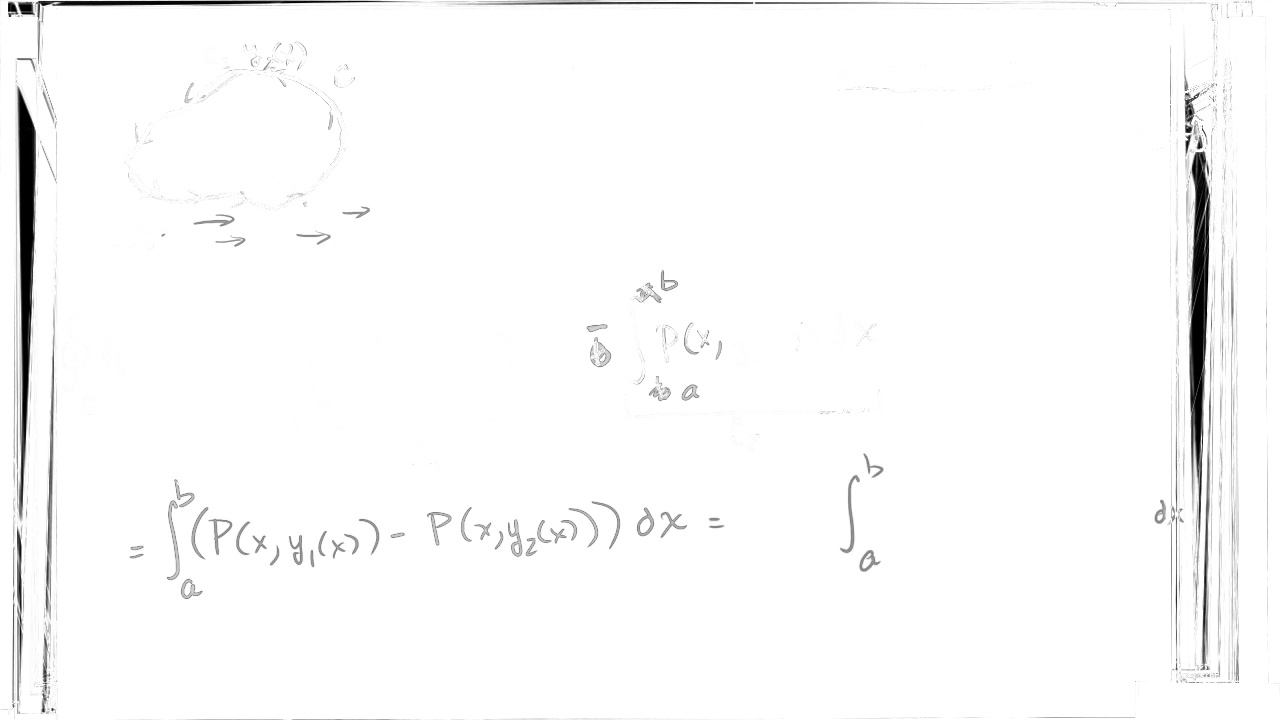 y₂(x) C
b
- ∫ P(x, dx
a
= ∫ₐᵇ (P(x, y₁(x)) - P(x, y₂(x))) dx = ∫ₐᵇ dx